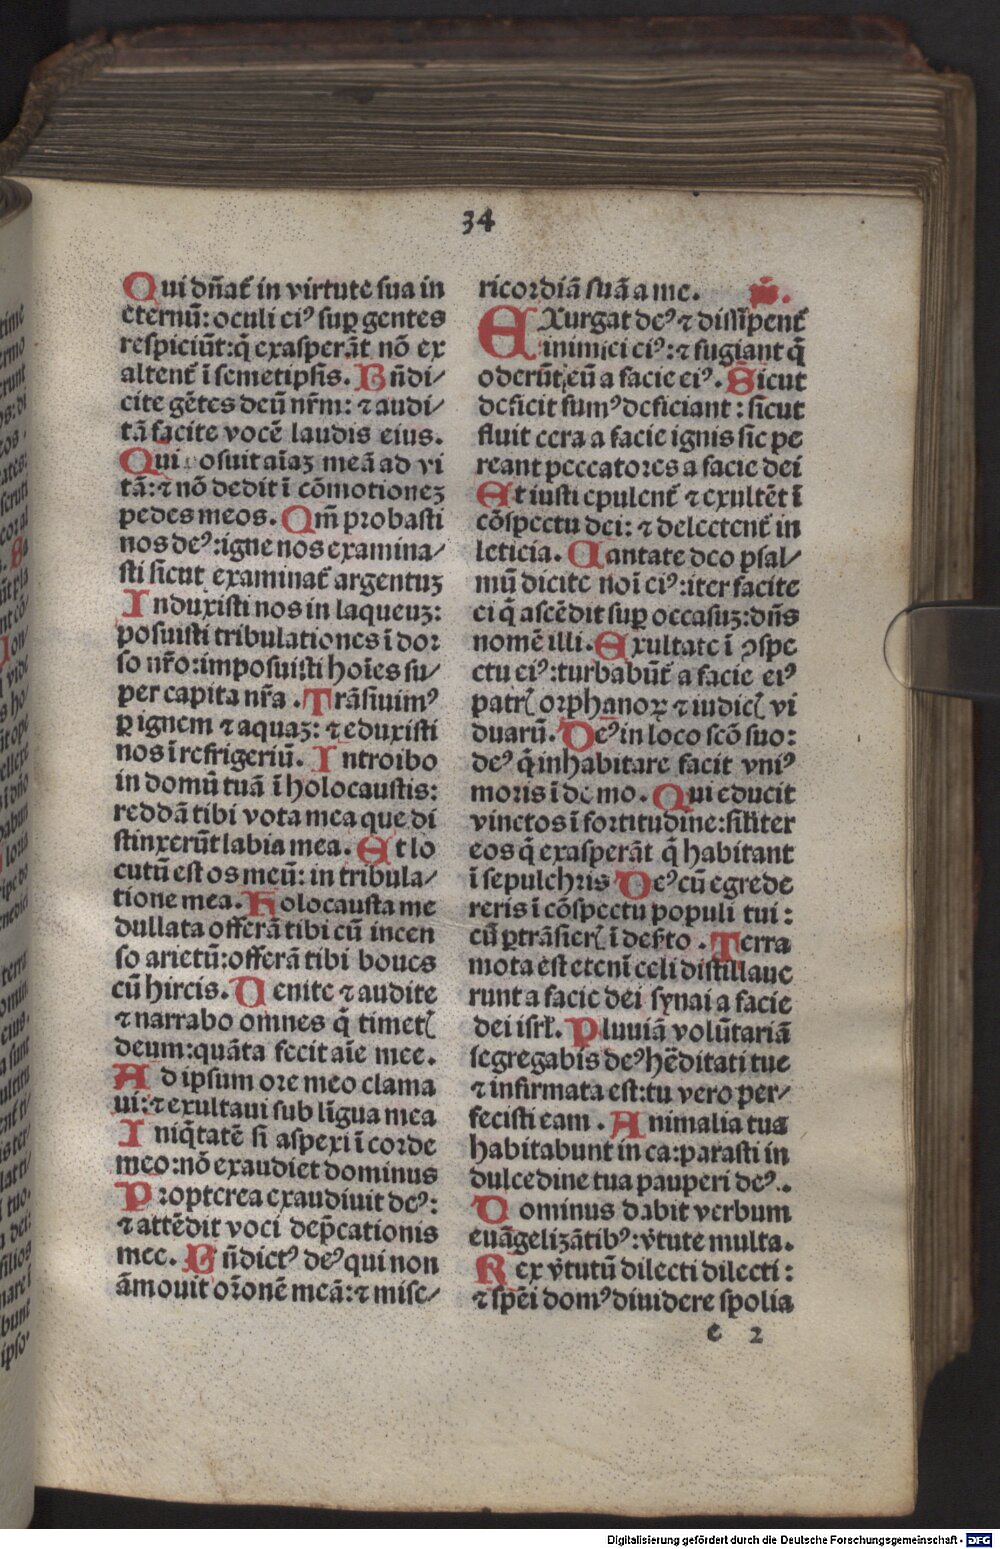 34
Qui dn̄at̄ in virtute sua in
eternū: oculi eiꝰ suꝑ gentes
respiciūt: q̄ exasperāt nō ex
altent̄ ī semetipsis. Bn̄di⸗
cite gētes deū nr̄m: ⁊ audi⸗
tā facite vocē laudis eius.
Qui osuit aīaꝫ meā ad vi
tā: ⁊ nō dedit ī cōmotioneꝫ
pedes meos. Qm̄ probasti
nos deꝰ: igne nos examina⸗
sti sicut examinat̄ argentuꝫ
Induxisti nos in laqueuꝫ:
posuisti tribulationes ī dor
so nr̄o: imposuisti hoīes su⸗
per capita nr̄a. Trāsiuimꝰ
ꝑ ignem ⁊ aquaꝫ: ⁊ eduxisti
nos ī refrigeriū. Introibo
in domū tuā ī holocaustis:
reddā tibi vota mea que di
stinxerūt labia mea. Et lo
cutū est os meū: in tribula⸗
tione mea. Holocausta me
dullata offerā tibi cū incen
so arietū: offerā tibi boues
cū hircis. Uenite ⁊ audite
⁊ narrabo omnes q̄ timetꝭ
deum: quāta fecit aīe mee.
Ad ipsum ore meo clama
ui: ⁊ exultaui sub līgua mea
Iniq̄tatē si aspexi ī corde
meo: nō exaudiet dominus
Propterea exaudiuit deꝰ:
⁊ attēdit voci dep̄cationis
mee. Bn̄dictꝰ deꝰ qui non
āmouit or̄onē meā: ⁊ mise⸗
ricordiā suā a me.
EXurgat deꝰ ⁊ dissipent̄
inimici eiꝰ: ⁊ fugiant q̄
oderūt eū a facie eiꝰ. Sicut
deficit fumꝰ deficiant: sicut
fluit cera a facie ignis sic pe
reant peccatores a facie dei
Et iusti epulent̄ ⁊ exultēt ī
cōspectu dei: ⁊ delectent̄ in
leticia. Cantate deo psal⸗
mū dicite noī eiꝰ: iter facite
ei q̄ ascēdit suꝑ occasuꝫ: dn̄s
nomē illi. Exultate ī ꝯspe
ctu eiꝰ: turbabūt̄ a facie eiꝰ
patrꝭ orphanoꝝ ⁊ iudicꝭ vi
duarū. Deꝰ in loco scō suo:
deꝰ q̄ inhabitare facit vniꝰ
moris ī do mo. Qui educit
vinctos ī fortitudine: sil̄iter
eos q̄ exasperāt q̄ habitant
ī sepulchris Deꝰ cū egrede
reris ī cōspectu populi tui:
cū ꝑtrāsierꝭ ī des̄to. Terra
mota est etenī celi distillaue
runt a facie dei synai a facie
dei isrl̄. Pluuiā volūtariā
segregabis deꝰ hēditati tue
⁊ infirmata est: tu vero per⸗
fecisti eam. Animalia tua
habitabunt in ea: parasti in
dulcedine tua pauperi deꝰ.
Dominus dabit verbum
euāgelizātibꝰ: v̄tute multa.
Rex v̄tutū dilecti dilecti:
⁊ spēi domꝰ diuidere spolia
e 2
Digitalisierung gefördert durch die Deutsche Forschungsgemeinschaft - DFG